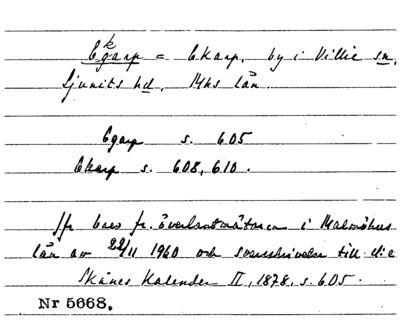 Egarp = Ekarp, by i Villie sn,
k
Ljunits hd, Mhs län
Egarp s. 605
Ekarp s. 608, 610.
Jfr brev fr. överlantmätaren i Malmöhus
län av 22/11 1960 och svarsskrivelse till d:o
Skånes Kalender II, 1878, s. 605.
Nr 5668.